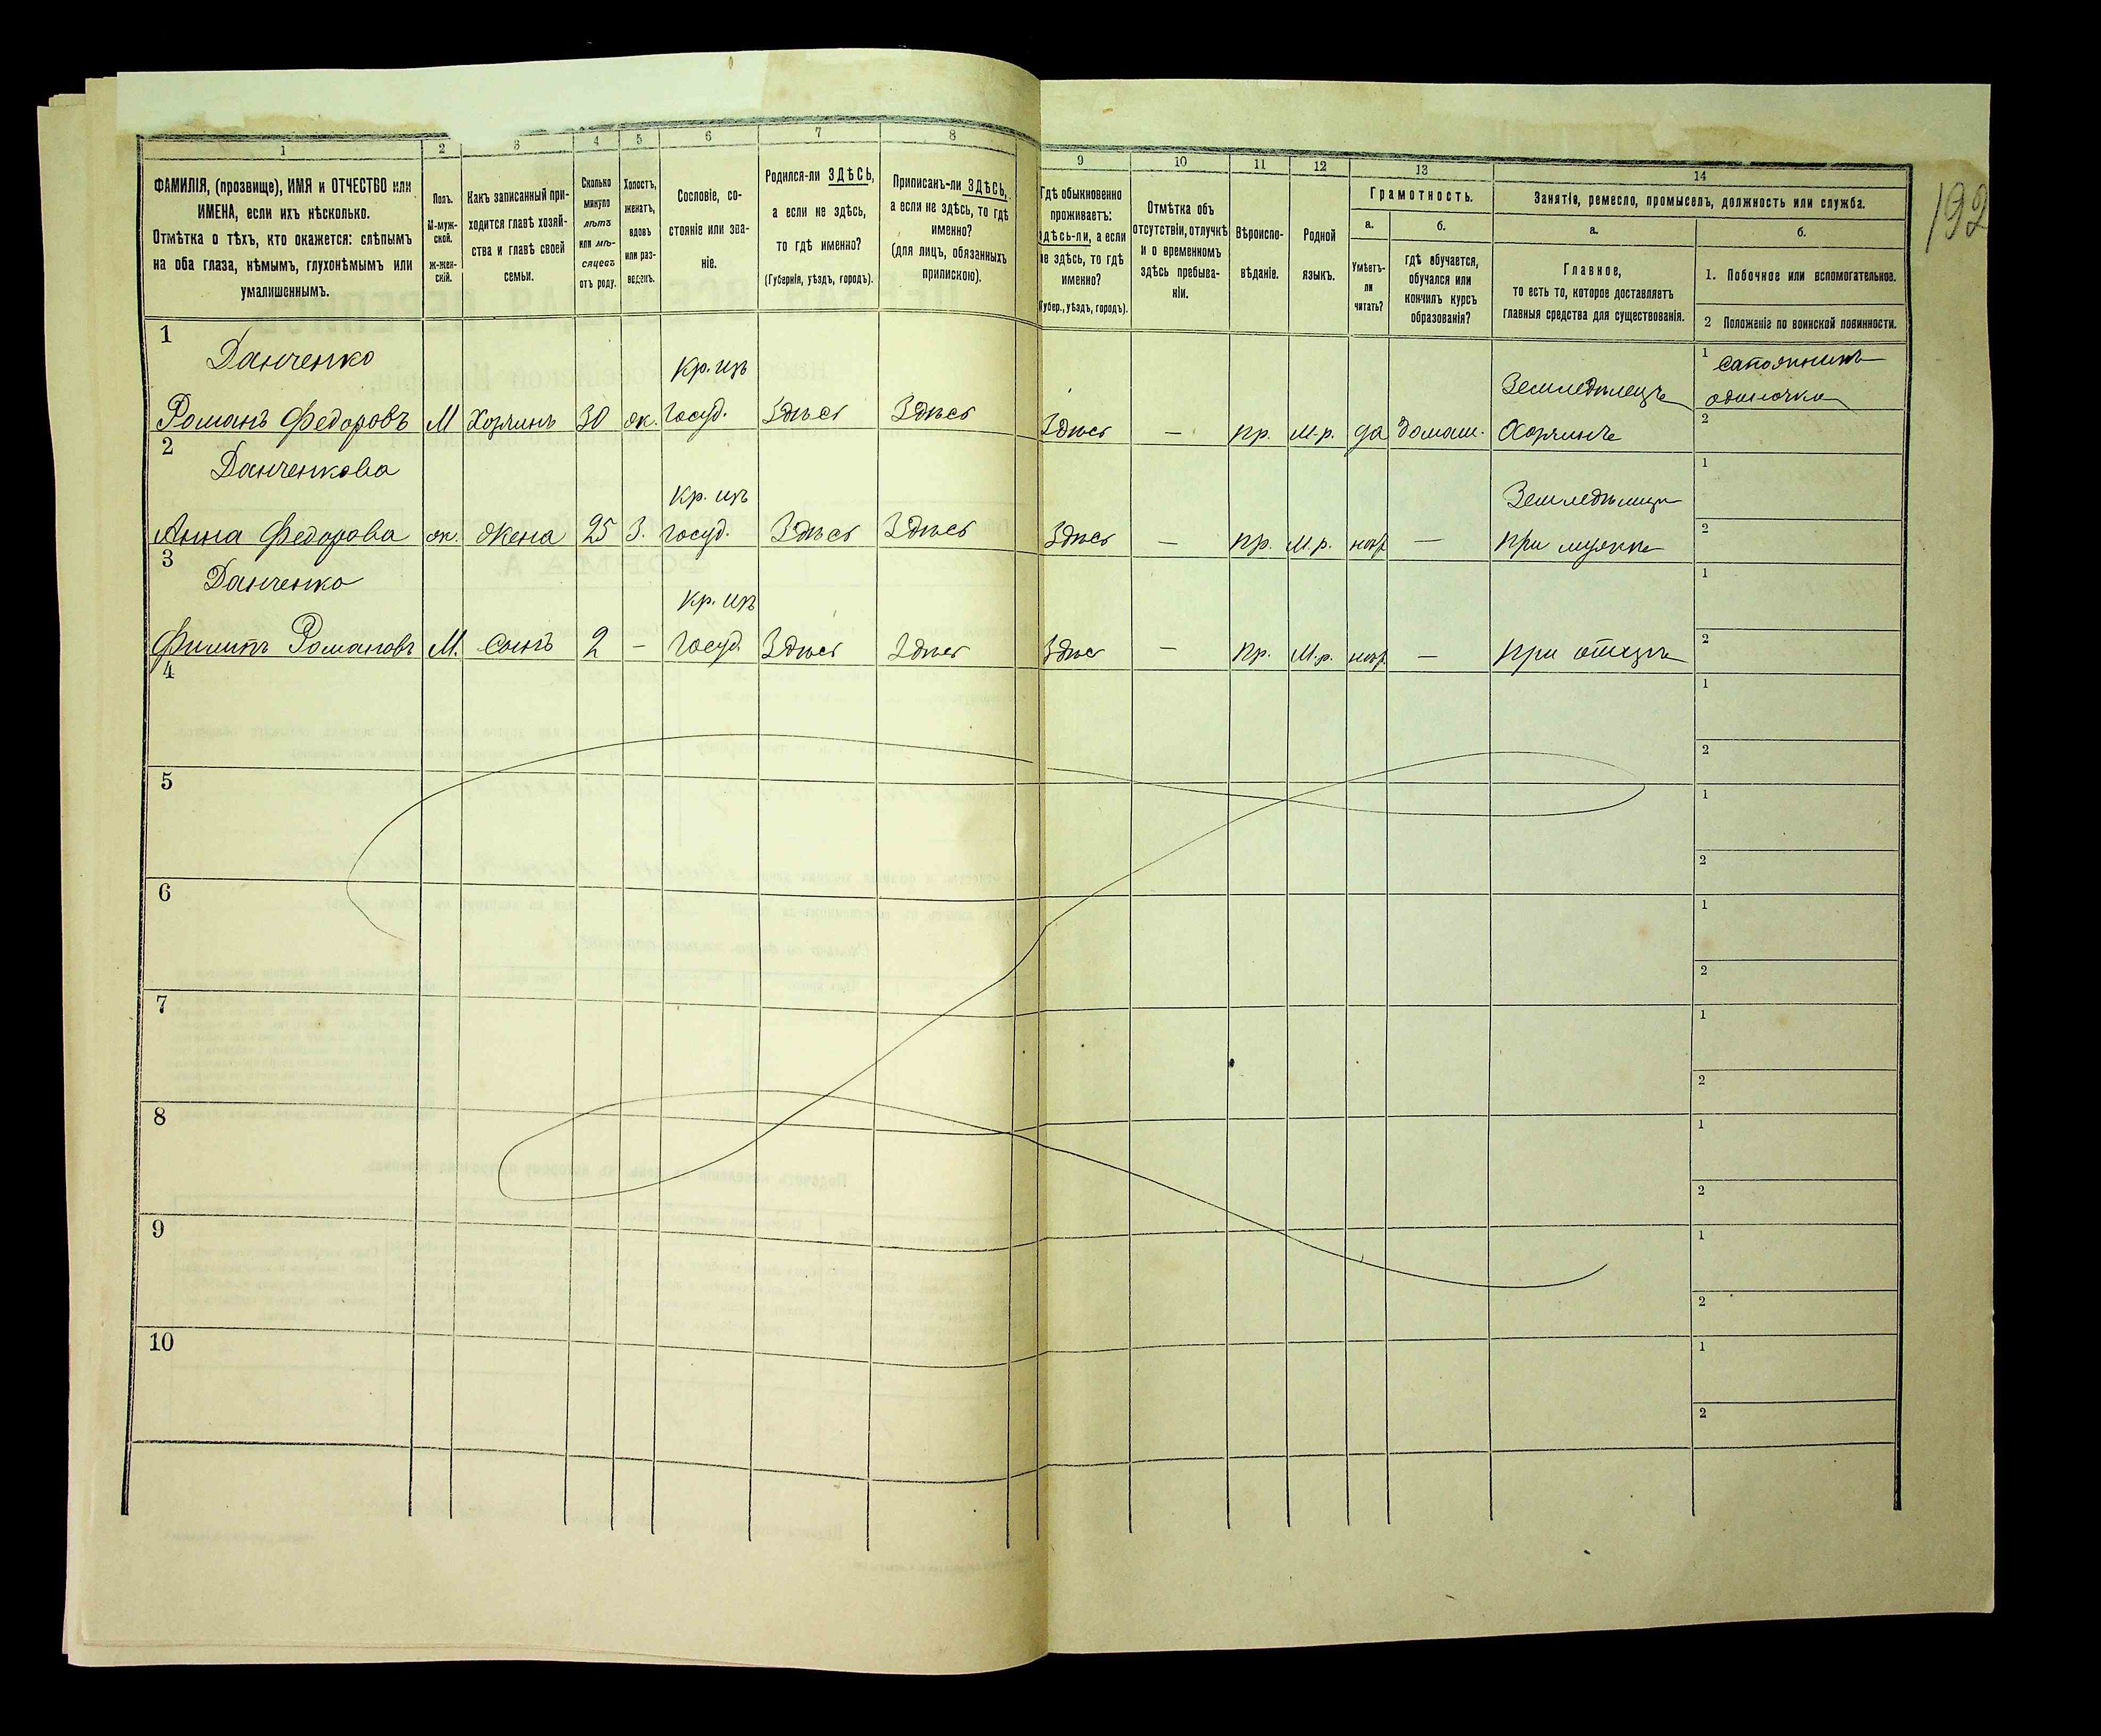 192
1
2
3
4
5
6
7
8
ФАМИЛІЯ, (прозвище), ИМЯ и ОТЧЕСТВО или
ИМЕНА, если ихъ нѣсколько.
Отмѣтка о тѣхъ, кто окажется: слѣпымъ
на оба глаза, нѣмымъ, глухонѣмымъ или
умалишеннымъ.
Полъ.
М-муж-
ской.
ж-жен-
скій.
Какъ записанный при-
ходится главѣ хозяй-
ства и главѣ своей
семьи.
Сколько
минуло
лѣтъ
или мѣ-
сяцевъ
отъ роду.
Холостъ,
женатъ,
вдовъ
или раз-
веденъ.
Сословіе, со-
стояніе или зва-
ніе.
Родился-ли ЗДѢСЬ,
а если не здѣсь,
то гдѣ именно?
(Губернія, уѣздъ, городъ).
Приписанъ-ли ЗДѢСЬ,
а если не здѣсь, то гдѣ
именно?
(для лицъ, обязанныхъ
припискою).
9
10
11
12
13
14
Гдѣ обыкновенно
проживаетъ:
здѣсь-ли, а если
не здѣсь, то гдѣ
именно?
(Губер., уѣздъ, городъ).
Отмѣтка объ
отсутствіи, отлучкѣ
и о временномъ
здѣсь пребыва-
ніи.
Вѣроиспо-
вѣданіе.
Родной
языкъ.
Грамотность.
а.
б.
Умѣетъ-
ли
читать?
гдѣ обучается,
обучался или
кончилъ курсъ
образованія?
Занятіе, ремесло, промыселъ, должность или служба.
а.
б.
Главное,
то есть то, которое доставляетъ
главныя средства для существованія.
1. Побочное или вспомогательное.
2 Положеніе по воинской повинности.
1
Данченко
Кр. изъ
Земледѣлецъ
1 сапожникъ
одиночка
Романъ Федоровъ М Хозяинъ 30 ж. Госуд. Здѣсь Здѣсь Здѣсь — пр. М.р. да домаш. Хозяинъ
2
2
Данченкова
Кр. изъ
Земледѣлица
1
Анна Федорова ж. Жена 25 З. Госуд. Здѣсь Здѣсь Здѣсь — пр. М.р. — при мужѣ
2
3
Данченко
Кр. изъ
1
Филипъ Романовъ М. Сынъ 2 — Госуд. Здѣсь Здѣсь Здѣсь — пр. М.р. — при отцѣ
2
4
1
2
5
1
2
6
1
2
7
1
2
8
1
2
9
1
2
10
1
2